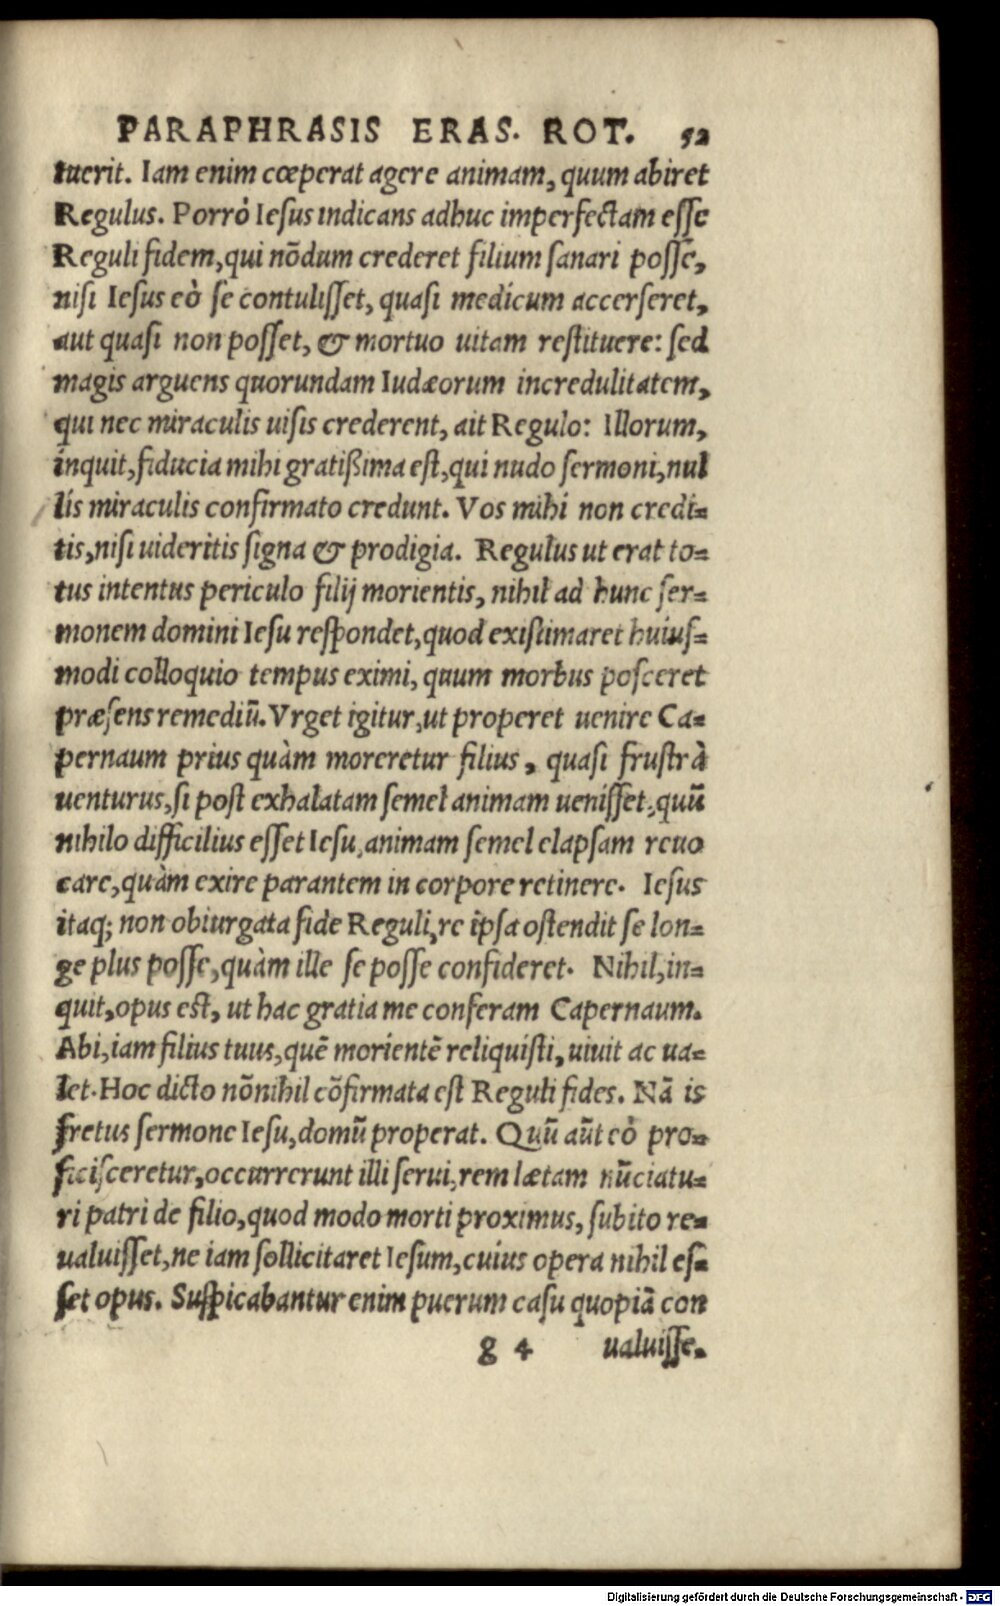 PARAPHRASIS ERAS. ROT. 52
tuerit. Iam enim cœperat agere animam, quum abiret
Regulus. Porrò Iesus indicans adhuc imperfectam esse
Reguli fidem, qui nõdum crederet filium sanari posse,
nisi Iesus eò se contulisset, quasi medicum accerseret,
aut quasi non posset, & mortuo uitam restituere: sed
magis arguens quorundam Iudæorum incredulitatem,
qui nec miraculis uisis crederent, ait Regulo: Illorum,
inquit, fiducia mihi gratißima est, qui nudo sermoni, nul
lis miraculis confirmato credunt. Vos mihi non credi=
tis, nisi uideritis signa & prodigia. Regulus ut erat to=
tus intentus periculo filij morientis, nihil ad hunc ser=
monem domini Iesu respondet, quod existimaret huius=
modi colloquio tempus eximi, quum morbus posceret
præsens remediũ. Vrget igitur, ut properet uenire Ca=
pernaum prius quàm moreretur filius, quasi frustrà
uenturus, si post exhalatam semel animam uenisset, quũ
nihilo difficilius esset Iesu, animam semel elapsam reuo
care, quàm exire parantem in corpore retinere. Iesus
itaq; non obiurgata fide Reguli, re ipsa ostendit se lon=
ge plus posse, quàm ille se posse confideret. Nihil, in=
quit, opus est, ut hac gratia me conferam Capernaum.
Abi, iam filius tuus, quẽ morientẽ reliquisti, uiuit ac ua=
let. Hoc dicto nõnihil cõfirmata est Reguli fides. Nã is
fretus sermone Iesu, domũ properat. Quũ aũt eò pro=
ficisceretur, occurrerunt illi serui, rem lætam nũciatu=
ri patri de filio, quod modo morti proximus, subito re=
ualuisset, ne iam sollicitaret Iesum, cuius opera nihil es=
set opus. Suspicabantur enim puerum casu quopiã con
g 4 ualuisse.
Digitalisierung gefördert durch die Deutsche Forschungsgemeinschaft - DFG